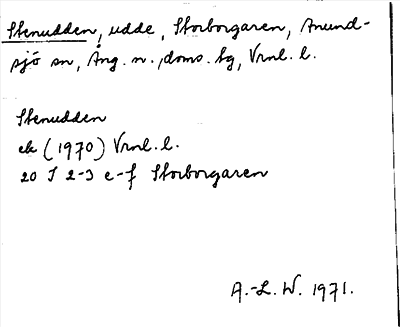 Stenudden, udde, Storborgaren, Anund-
sjö sn, Ång. n., doms. tg, Vrnl. l.
Stenudden
ek (1970) Vrnl. l.
20 I 2-3 e-f Storborgaren
A.-L. W. 1971.